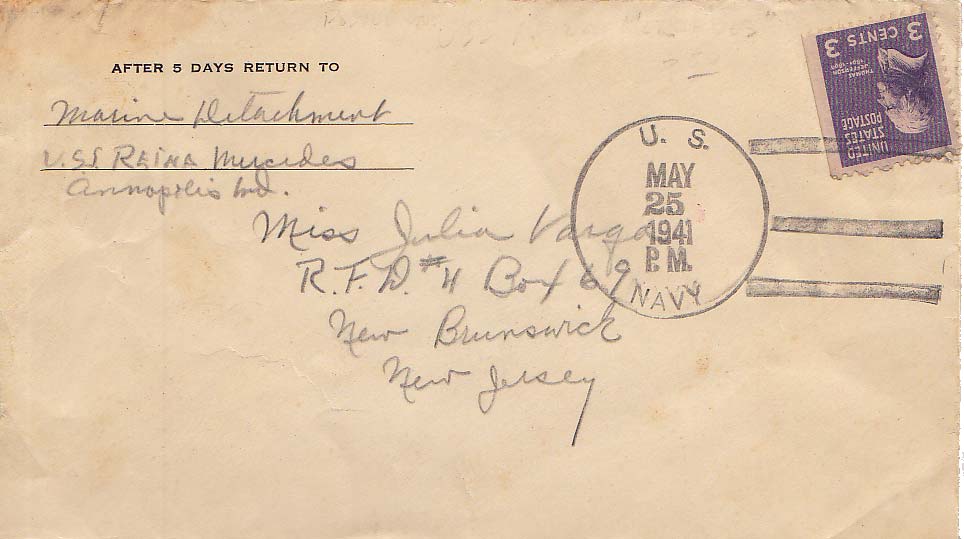 AFTER 5 DAYS RETURN TO
Marine Detachment
U.S.S. REINA Mercedes
Annapolis Md.
Miss Julia Varga
R.F.D. #4 Box 69
New Brunswick
New Jersey
U. S.
MAY
25
1941
P.M.
NAVY
UNITED
STATES
POSTAGE
THOMAS
JEFFERSON
1801-1809
3 CENTS 3